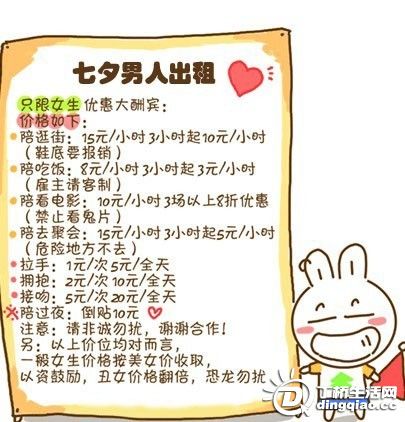 七夕男人出租
只限女生 优惠大酬宾：
价格如下：
陪逛街：15元/小时 3小时起10元/小时
（鞋底要报销）
陪吃饭：8元/小时 3小时起3元/小时
（雇主请客制）
陪看电影：10元/小时 3场以上8折优惠
（禁止看鬼片）
陪去聚会：15元/小时 3小时起5元/小时
（危险地方不去）
拉手：1元/次 5元/全天
拥抱：2元/次 10元/全天
接吻：5元/次 20元/全天
陪过夜：倒贴10元
注意：请非诚勿扰，谢谢合作！
另：以上价位均对而言，
一般女生价格按美女价收取，
以资鼓励，丑女价格翻倍，恐龙勿扰
丁桥生活网
dingqiao.cc